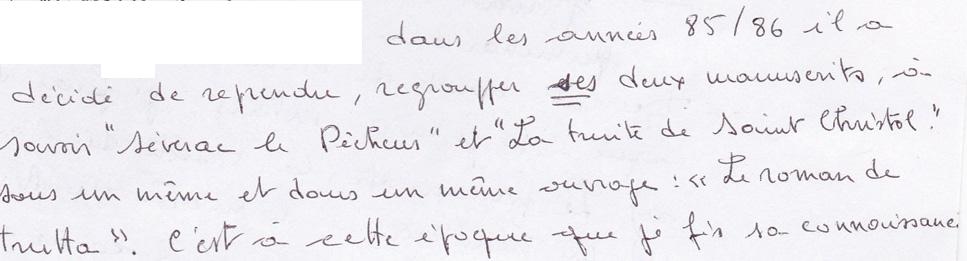 dans les années 85/86 il a
décidé de reprendre, regrouper ses deux manuscrits, à
savoir "Séverac le Pêcheur" et "La truite de Saint Christol".
sous un même et dans un même ouvrage : « Le roman de
trutta ». C'est à cette époque que je fis sa connaissance